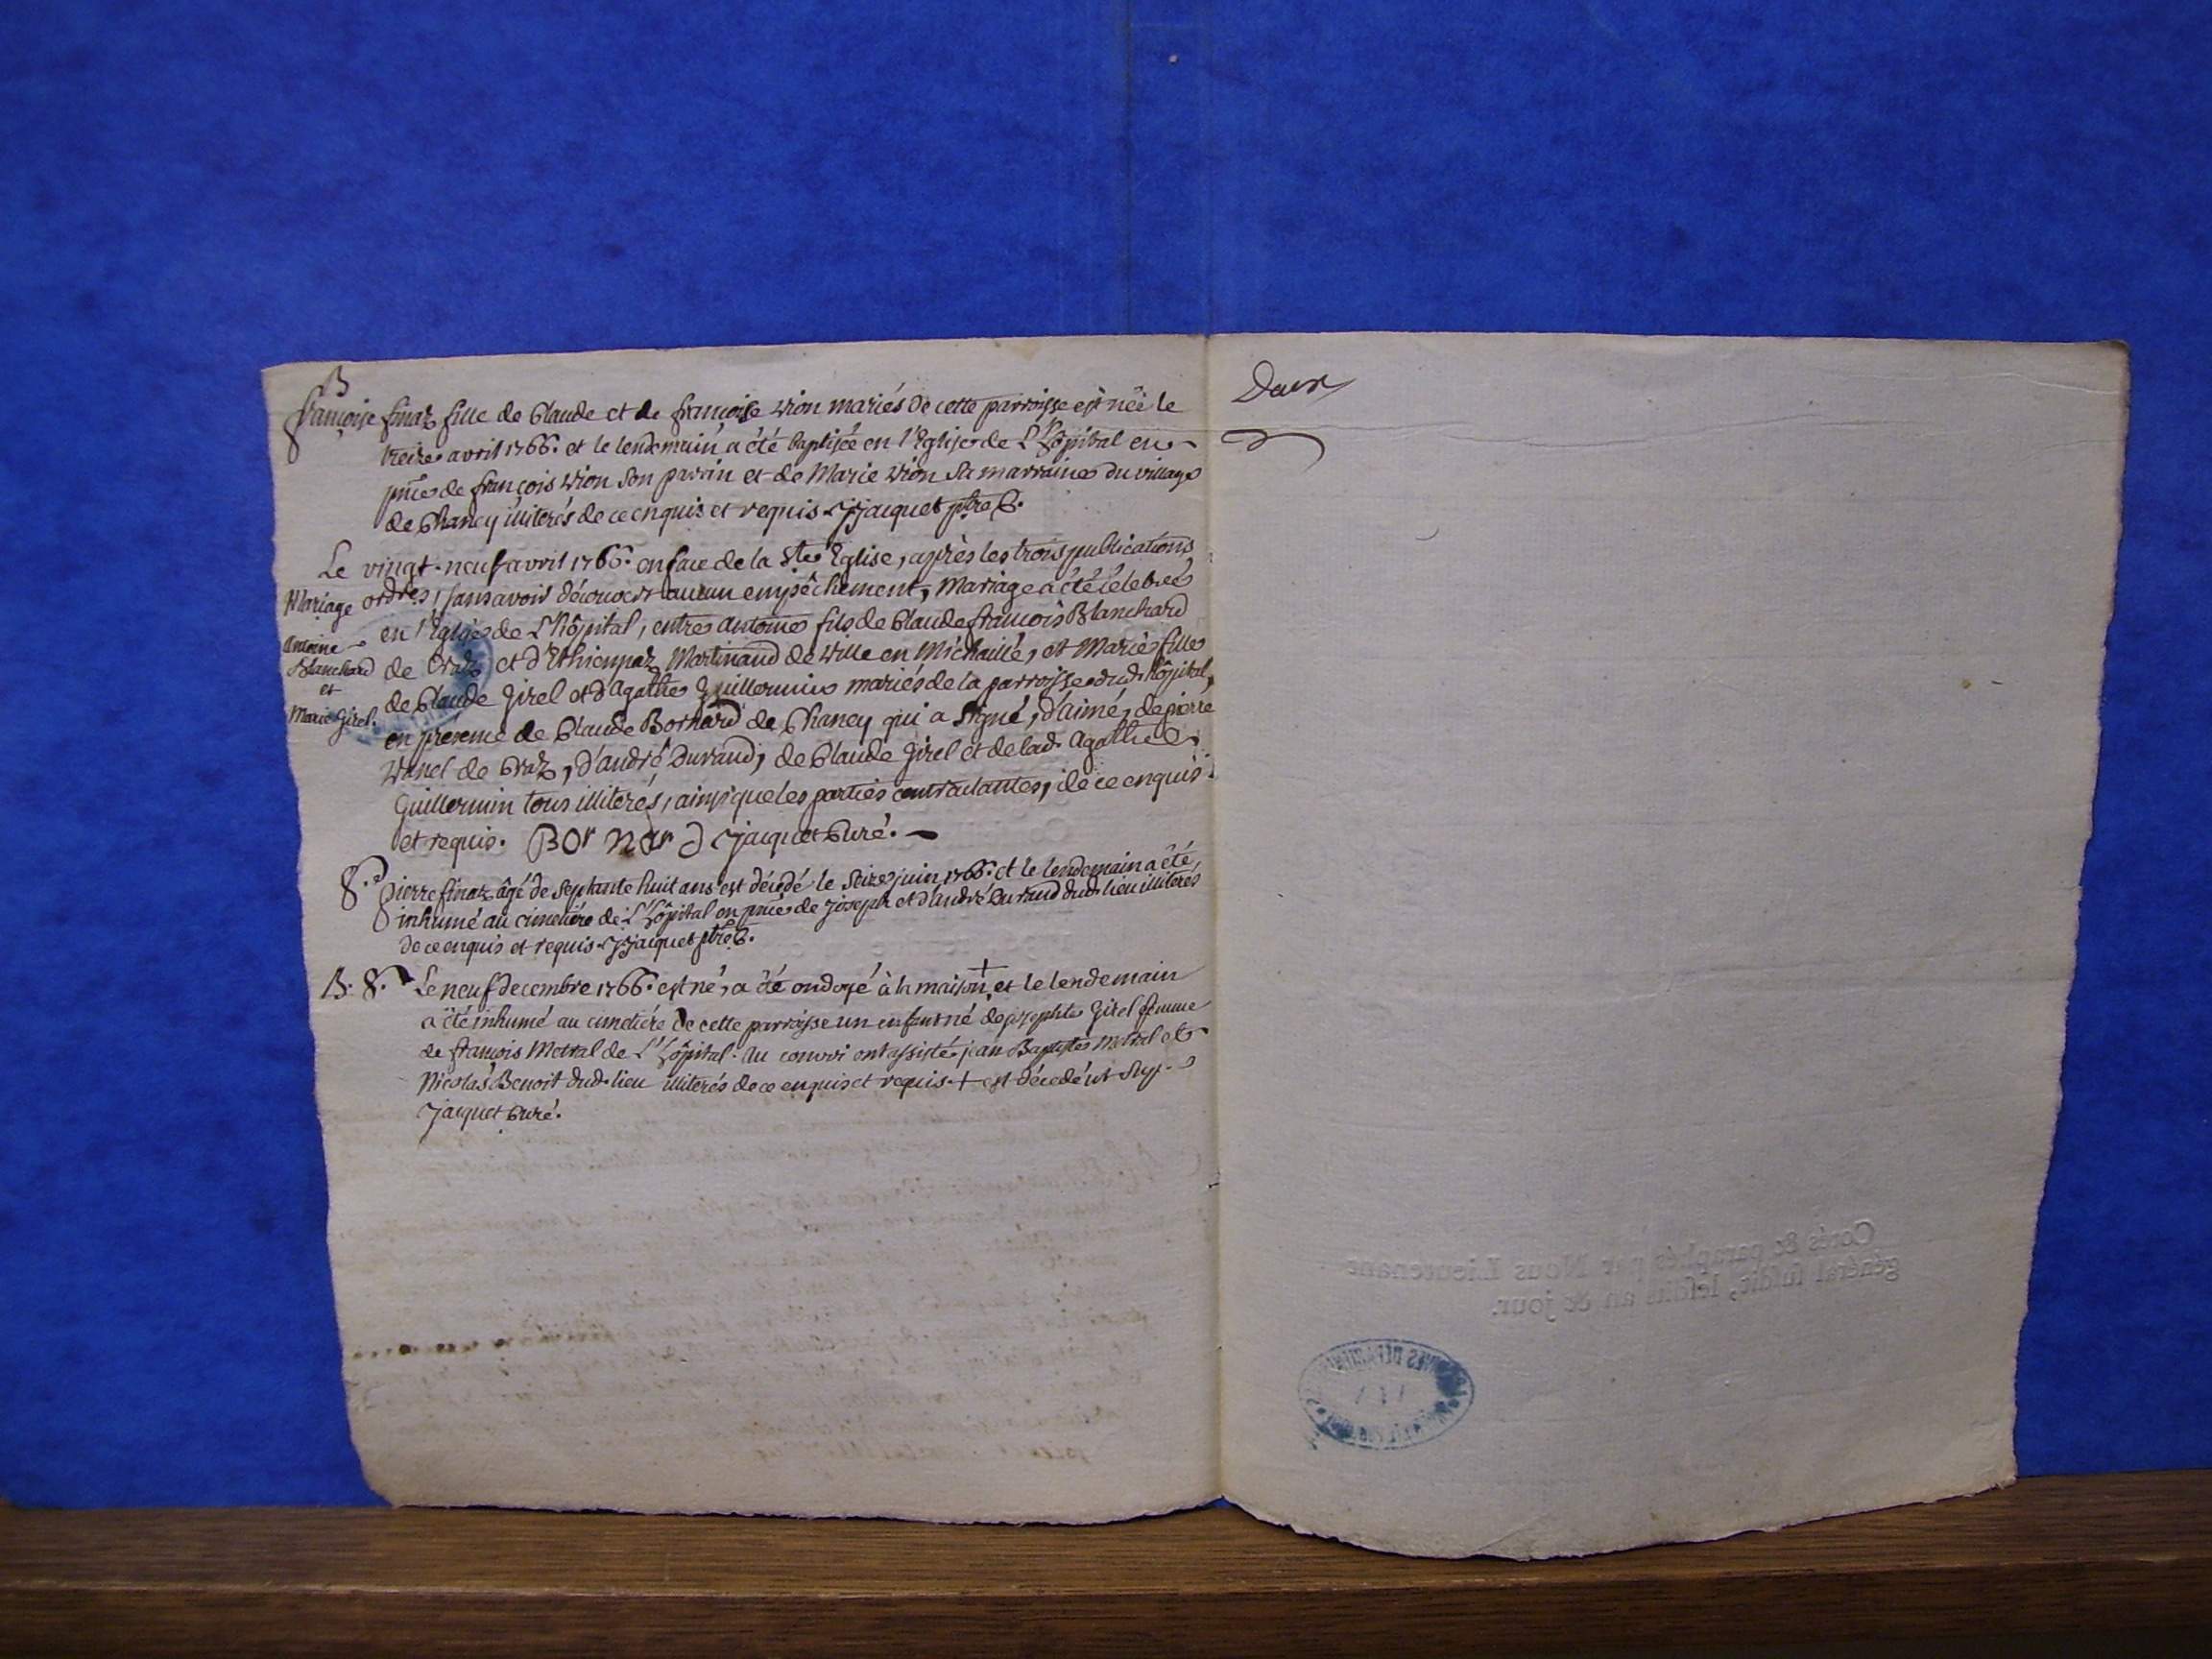 B
françoise finaz fille de Claude et de françoise Vion mariés de cette parroisse est née le
treize avril 1766. et le lendemain a été baptisée en l'Eglise de L'Hôpital en
pñce de françois Vion son parrin et de Marie Vion sa marraine du village
de Chancy illiterés de ce enquis et requis. Jjacquet ptre C.
Le vingt-neuf avril 1766. en face de la Ste Eglise, après les trois publications
Mariage
Antoine
Blanchard
et
Marie Girel.
ordres, sans avoir découvert aucun empêchement, Mariage a été célebré
en l'Eglise de L'hôpital, entre antoine fils de Claude françois Blanchard
de Craz et d'Ethiennaz Martinand de Ville en Michaille, et Marie fille
de Claude Girel et d'Agathe Guillermin mariés de la parroisse dud. hôpital,
en présence de Claude Bornard de Chancy qui a signé, d'aimé, de pierre
Vanel de Craz, d'andré Durand, de Claude Girel et de lad. Agathe
Guillermin tous illiterés, ainsi que les parties contractantes, de ce enquis
et requis. Bornard Jacquet Curé.
S. pierre finaz âgé de septante huit ans est décédé le seize juin 1766. et le lendemain a été
inhumé au cimetière de L'Hôpital en pñce de Joseph et d'André Durand dud. lieu illiterés
de ce enquis et requis. Jjacquet ptre C.
B. S. Le neuf decembre 1766. est né, a été ondoyé à la maison + et le lendemain
a été inhumé au cimetière de cette parroisse un enfant né de josephte Girel femme
de françois Metral de L'Hôpital. Au convoi ont assisté jean Baptiste Metral et
Nicolas Benoit dud. lieu illiterés de ce enquis et requis. + est décedé
Jacquet Curé.
Conés & paraphés par Nous Lieutenant
général susdit, lesdits an & jour.